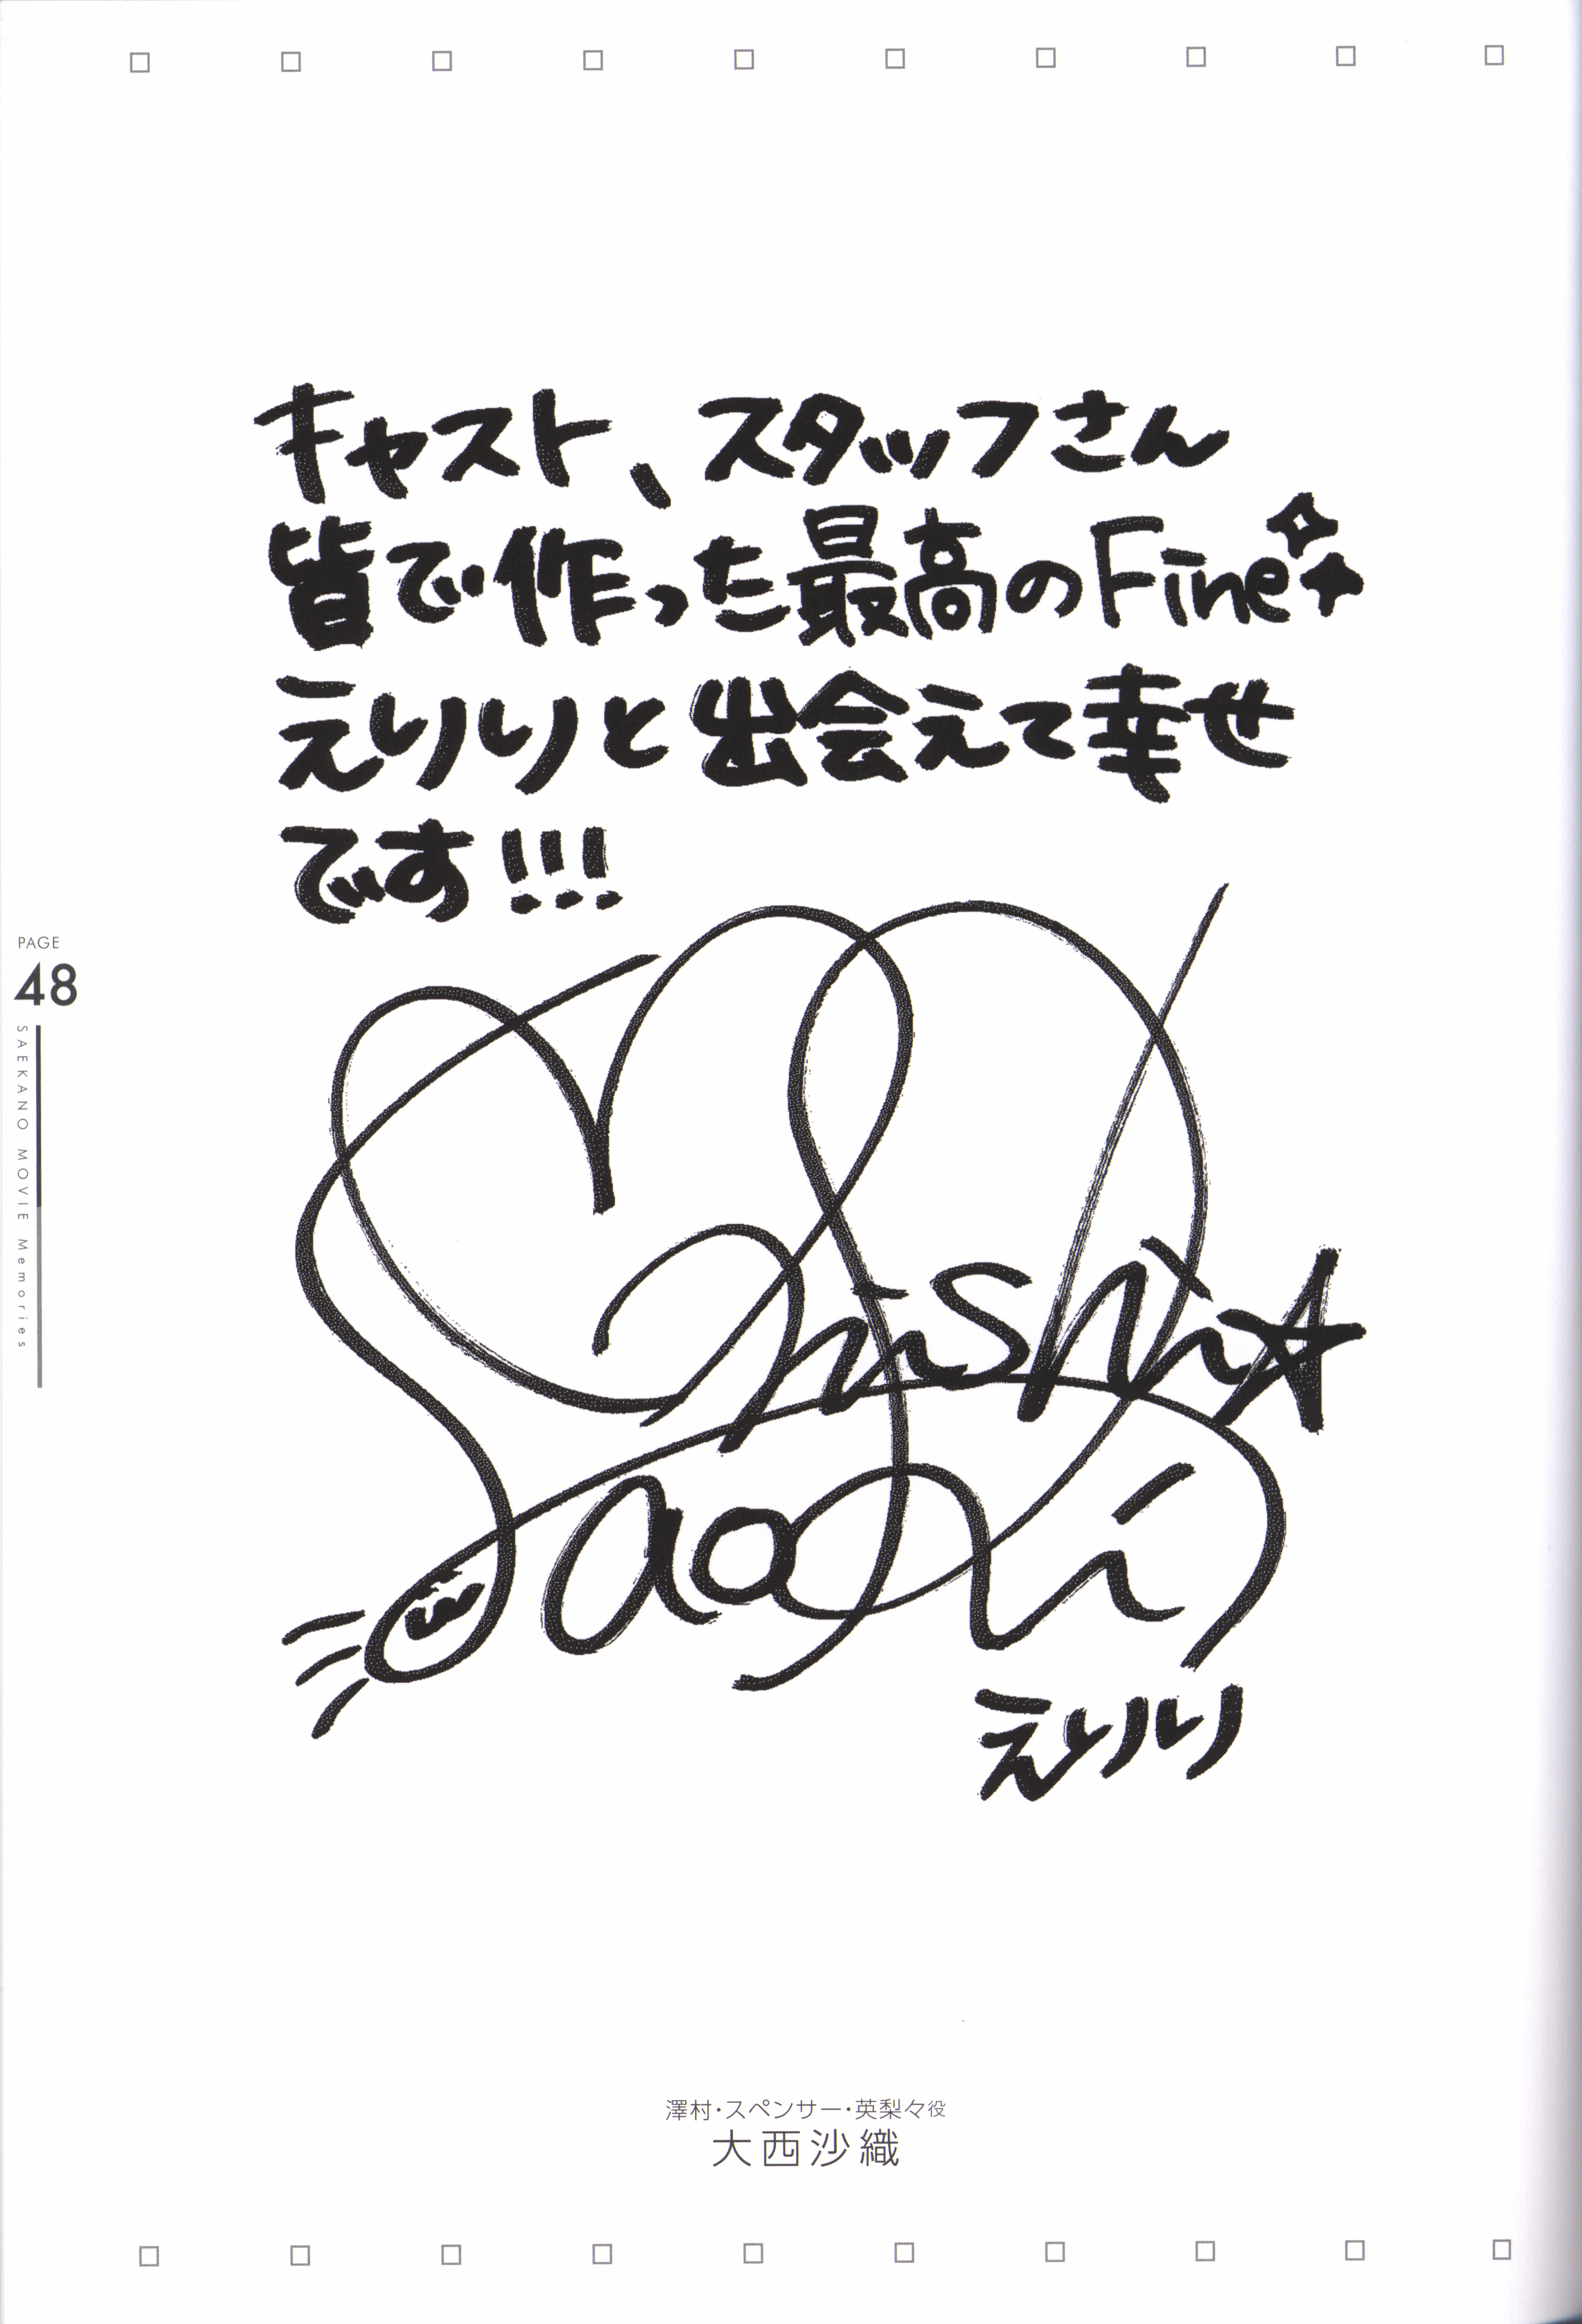 キャスト、スタッフさん
皆で作った最高のFine
えりりと出会えて幸せ
です!!!
Ohnishi☆
Saori
えりり
PAGE
48
SAEKANO MOVIE Memories
澤村・スペンサー・英梨々役
大西沙織